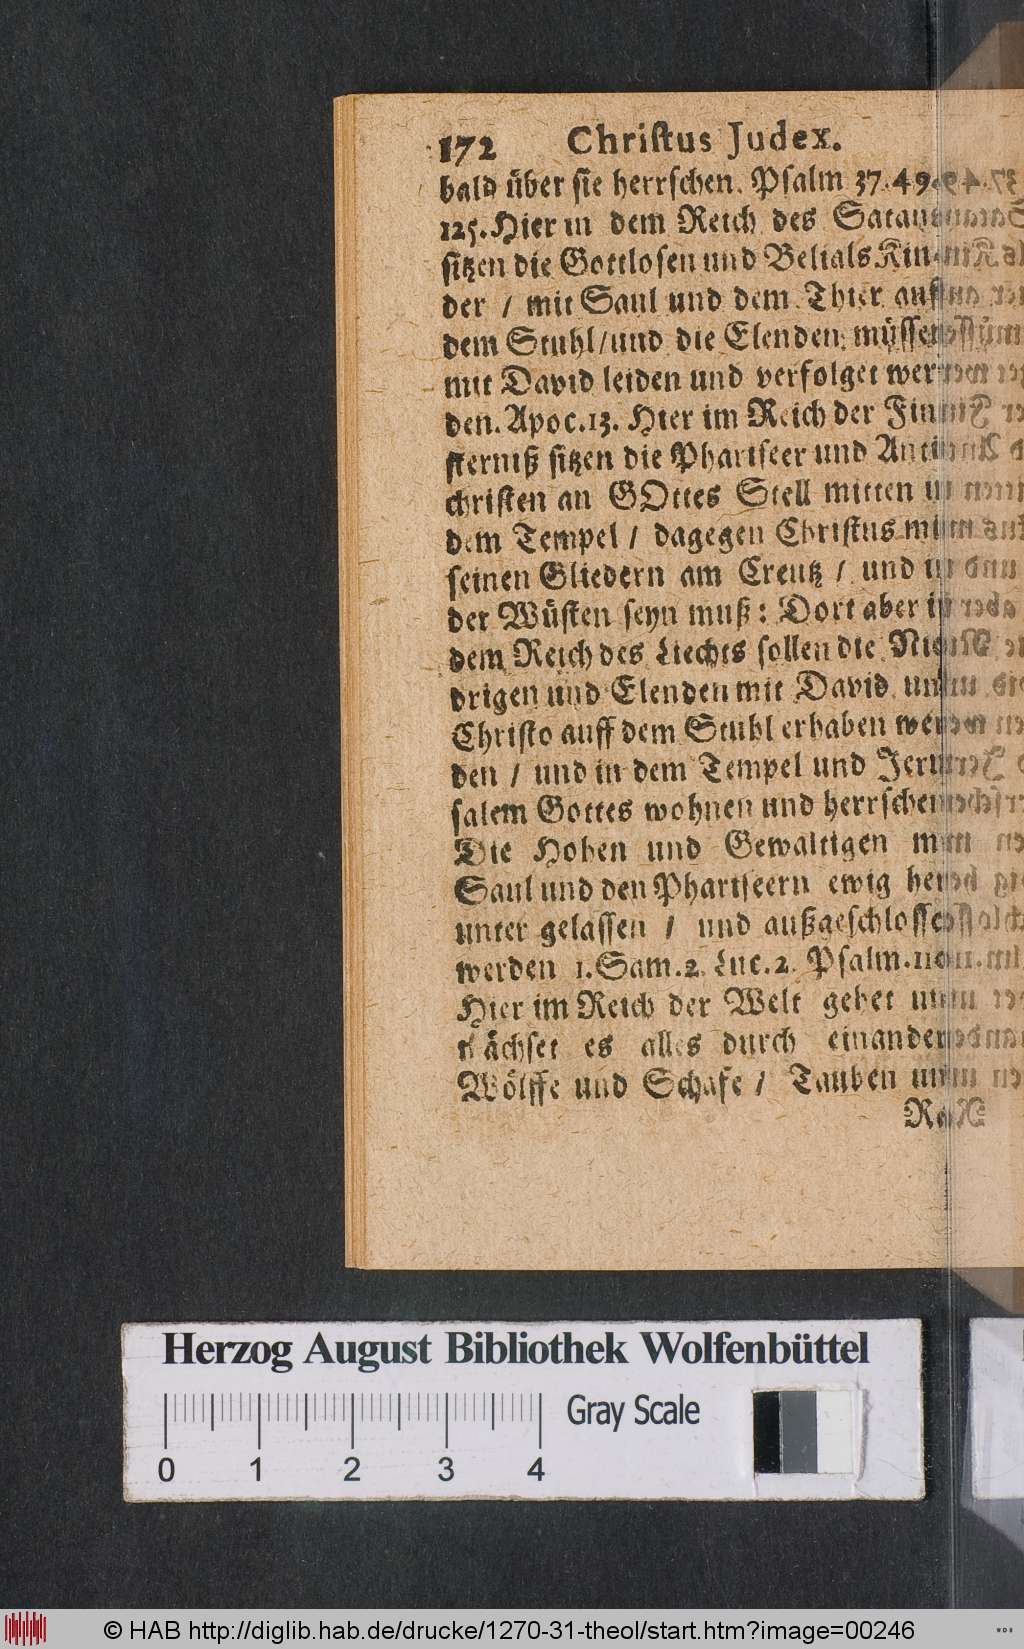 172 Christus Judex.
bald über sie herrschen. Psalm 37. 49.
125. Hier in dem Reich des Satans
sitzen die Gottlosen und Belials Kin-
der / mit Saul und dem Thier auff
dem Stuhl / und die Elenden müssen
mit David leiden und verfolget wer-
den. Apoc. 13. Hier im Reich der Fin-
sterniß sitzen die Phariseer und Anti-
christen an GOttes Stell mitten in
dem Tempel / dagegen Christus mit
seinen Gliedern am Creutz / und in
der Wüsten seyn muß: Dort aber in
dem Reich des Liechts sollen die Nie-
drigen und Elenden mit David und
Christo auff dem Stuhl erhaben wer-
den / und in dem Tempel und Jeru-
salem Gottes wohnen und herrschen
Die Hohen und Gewaltigen mit
Saul und den Phariseern ewig her-
unter gelassen / und außgeschlossen
werden 1. Sam. 2. Luc. 2. Psalm. 110.
Hier im Reich der Welt gehet und
wächset es alles durch einander
Wölffe und Schafe / Tauben und
Ra-
Herzog August Bibliothek Wolfenbüttel
Gray Scale
0 1 2 3 4
© HAB http://diglib.hab.de/drucke/1270-31-theol/start.htm?image=00246